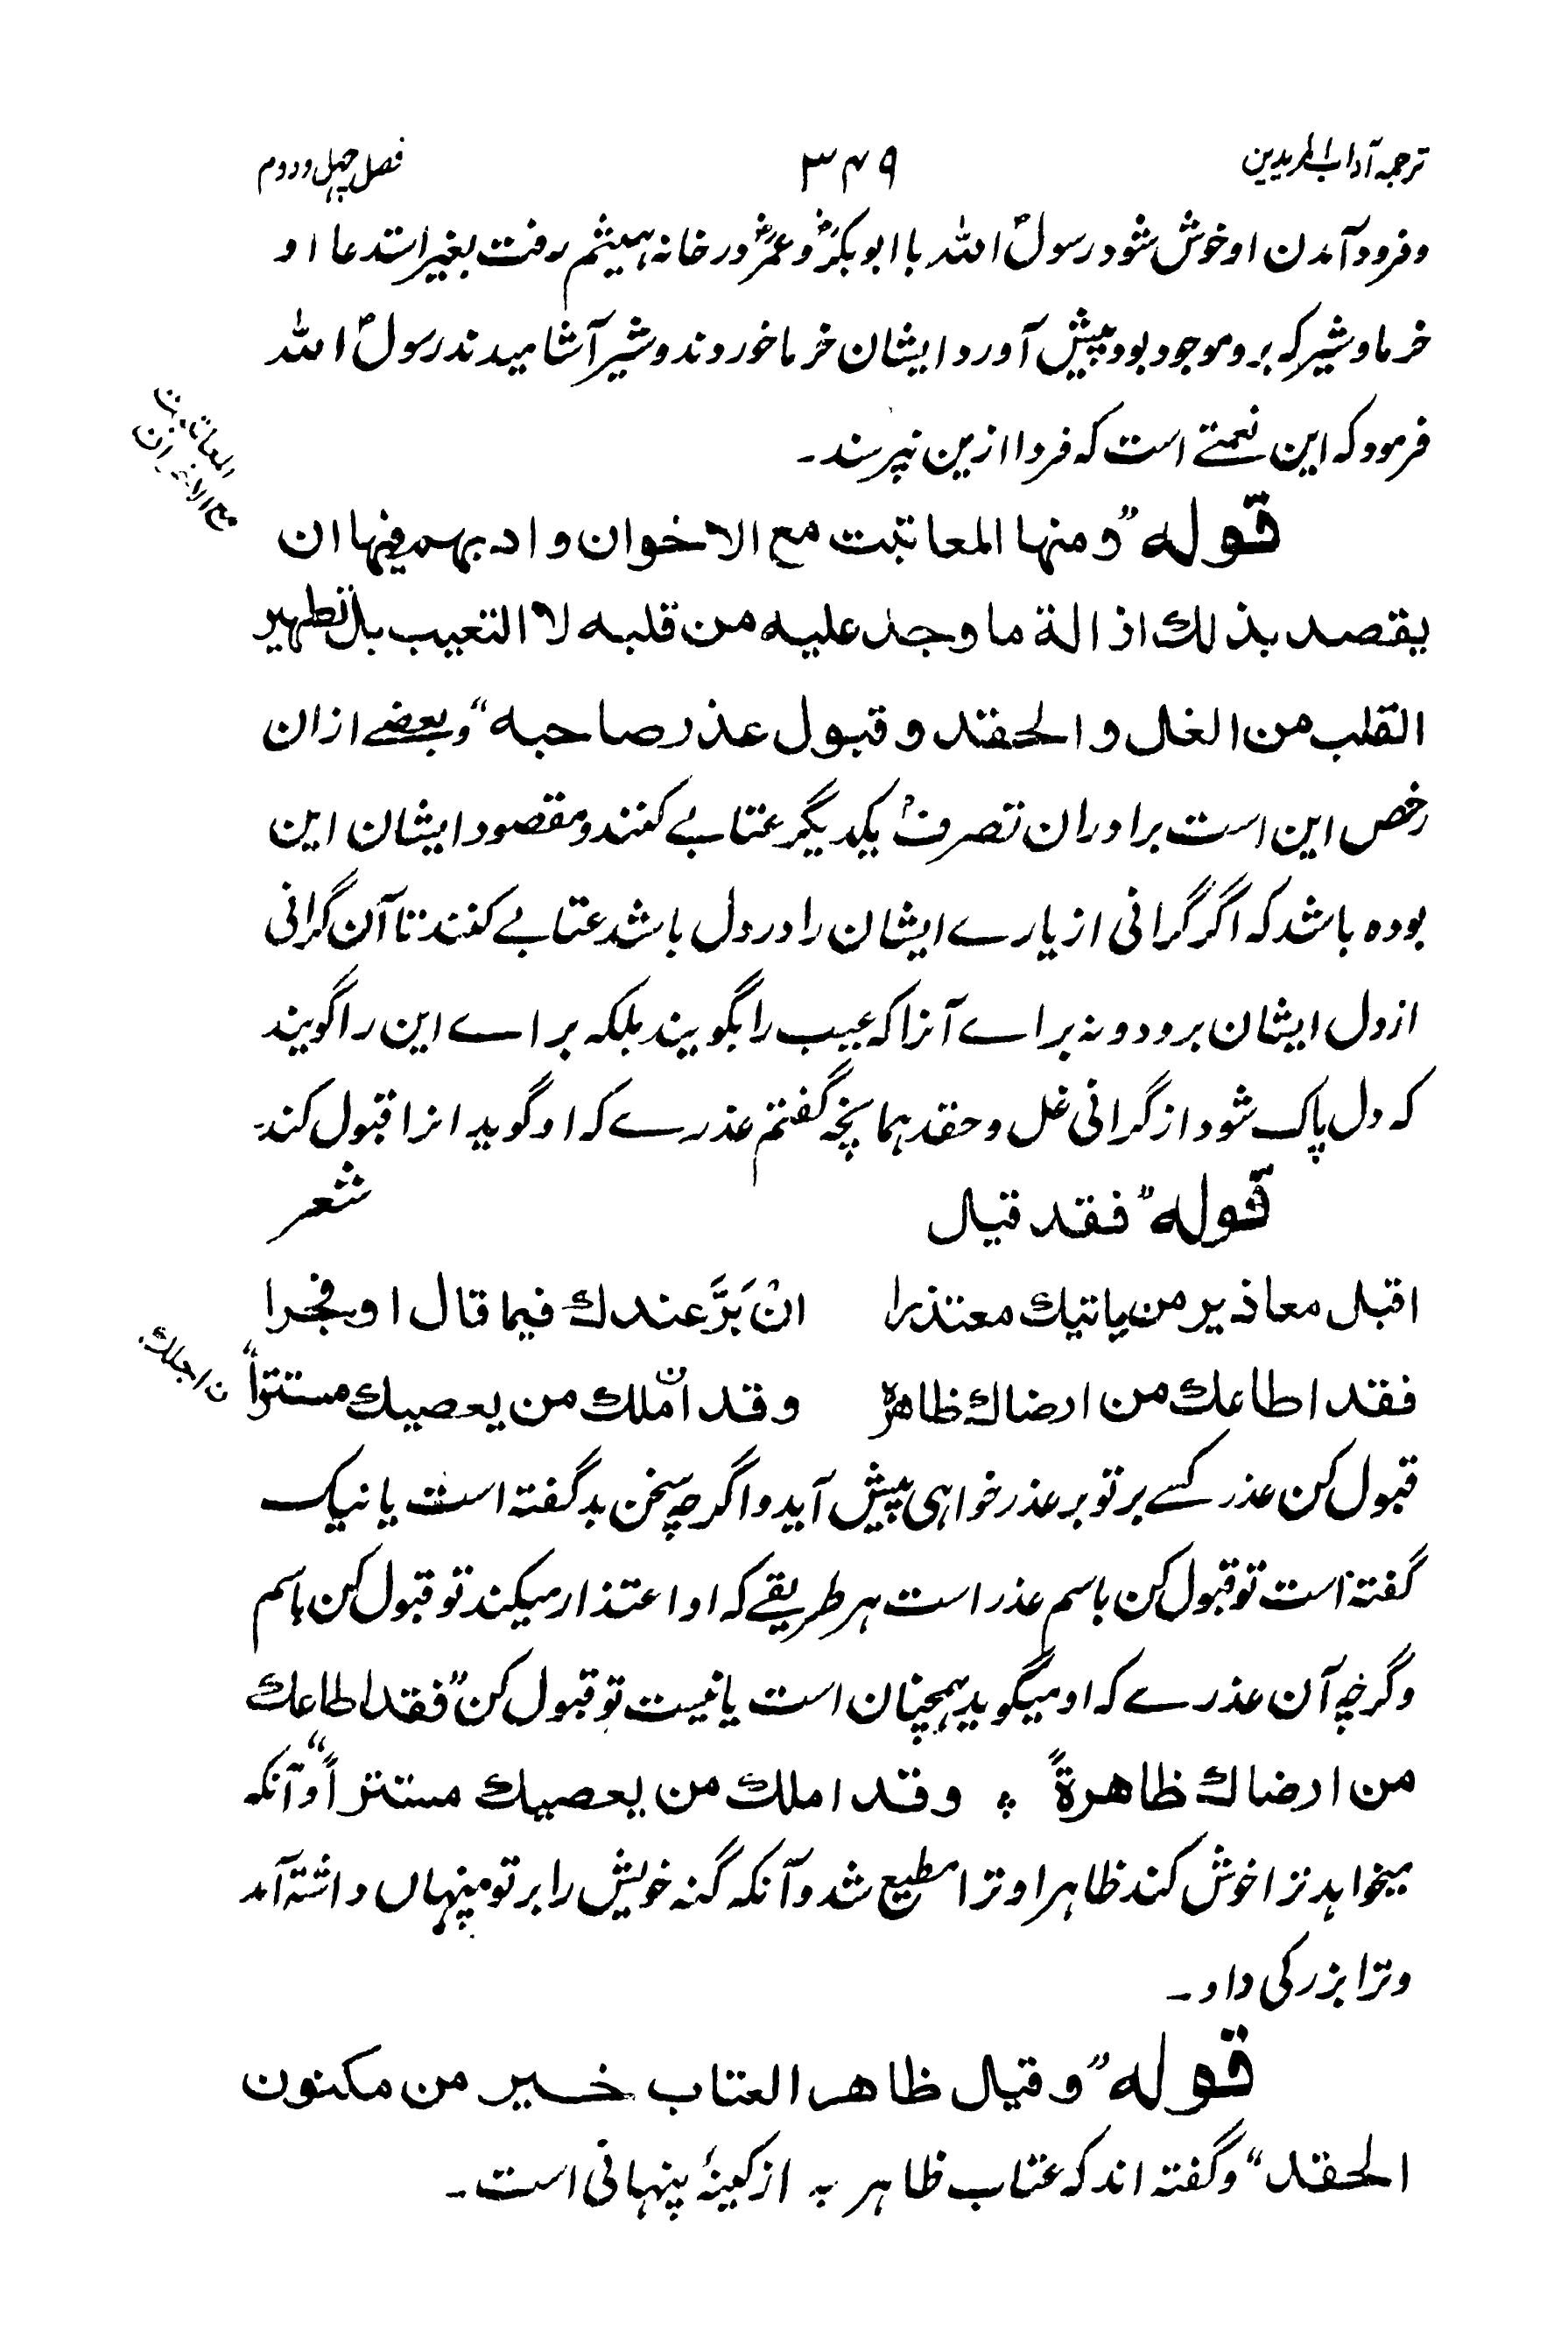 ترجمہ آداب المریدین
۳۴۹
فصل چہل و دوم
و فرود آمدن او خوش شود رسولؐ اللہ با ابوبکرؓ و عمرؓ در خانہ ہیثم رفت بغیر استدعا او
خرما و شیر کہ برو موجود بود پیش آورد ایشان خرما خوردند و شیر آشامیدند رسولؐ اللہ
فرمود کہ این نعمتے است کہ فردا ازین نپرسند۔
المعاتبت
مع الاخوان
قولہ "ومنها المعاتبت مع الاخوان و ادبهم فيها ان
يقصد بذلك ازالة ما وجد عليه من قلبه لا التعيب بل تطهير
القلب من الغل و الحقد و قبول عذر صاحبه" و بعضے ازان
رخص این است برادران تصرف یکدیگر عتابے کنند و مقصود ایشان این
بودہ باشد کہ اگر گرانی از یارے ایشان را در دل باشد عتابے کنند تا آن گرانی
از دل ایشان برود و نہ براے آنرا کہ عیب را بگویند بلکہ براے این را گویند
کہ دل پاک شود از گرانی غل و حقد ہمانچہ گفتم عذرے کہ او گوید انرا قبول کند۔
قولہ "فقد قيل
شعر
اقبل معاذير من ياتيك معتذرا ان بَرَّ عندك فيما قال او فجرا
فقد اطاعك من ارضاك ظاهرہ وقد املك من يعصيك مستتراً"
ن اجلك
قبول کن عذر کسے بر تو بر عذر خواہی پیش آید و اگرچہ سخن بد گفتہ است یا نیک
گفتہ است تو قبول کن باسم عذر است ہر طریقے کہ او اعتذار میکند تو قبول کن باسم
وگرچہ آن عذرے کہ او میگوید ہمچنان است یا نیست تو قبول کن "فقد اطاعك
من ارضاك ظاهرةً ؞ وقد املك من يعصيك مستتراً" و آنکہ
میخواہد ترا خوش کند ظاہرا و ترا مطیع شد و آنکہ گنہ خویش را بر تو پنہاں داشتہ آمد
و ترا بزرگی داد۔
قولہ "وقيل ظاهر العتاب خير من مكنون
الحقد" و گفتہ اند کہ عتاب ظاہر بہ از کینۂ پنہانی است۔